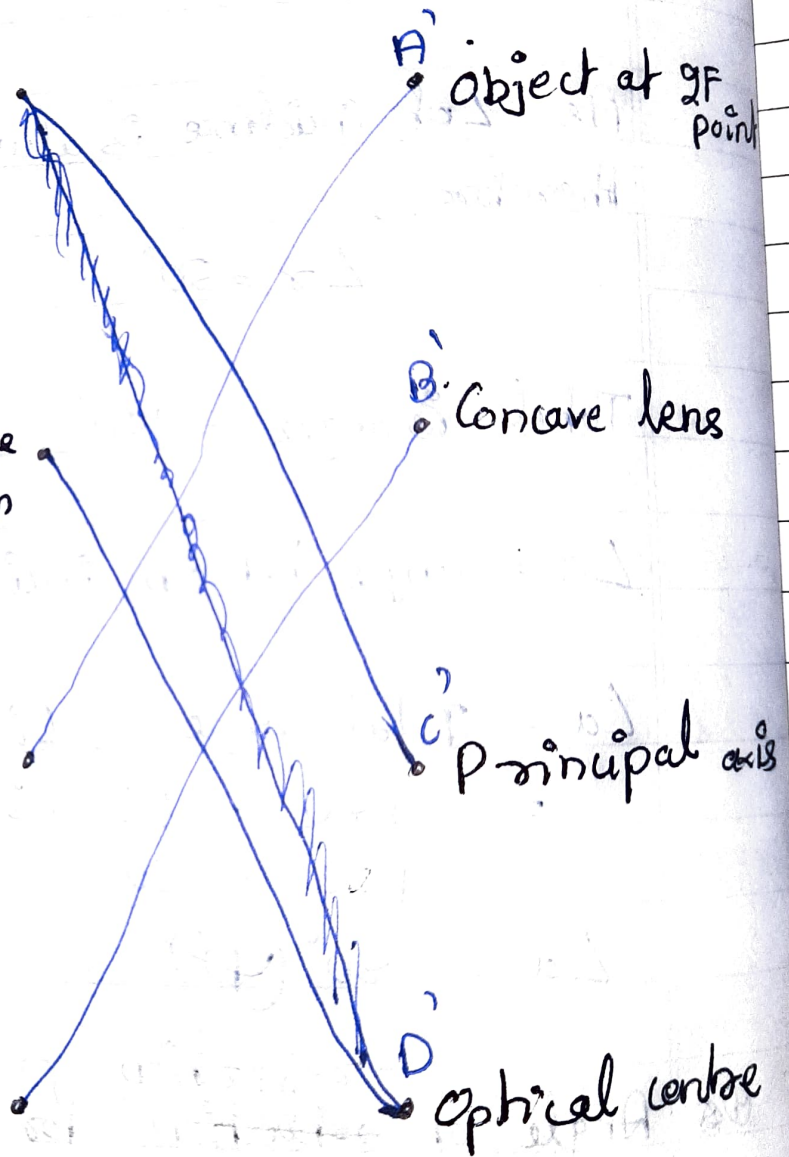 A'
Object at 2F
point
B'
Concave lens
C'
Principal axis
D'
Optical centre